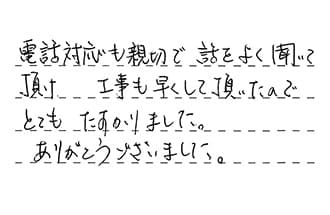 電話対応も親切で 話をよく聞いて
頂け 工事も早くして頂いたので
とても たすかりました。
ありがとうございました。